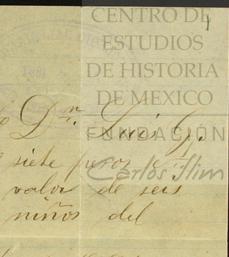 CENTRO DE
ESTUDIOS
DE HISTORIA
DE MEXICO
FUNDACIÓN
Carlos Slim
Dn. Luis G.
siete pesos
valor de seis
niños del